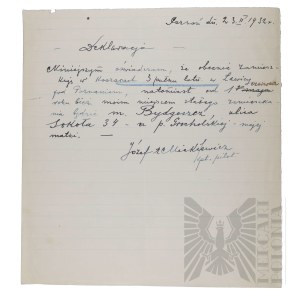 Poznań dn. 23.II 1932 r.
Deklaracja
Niniejszym oświadczam, że obecnie zamiesz-
kuję w koszarach 3 pułku lotn. w Ławicy
pod Poznaniem, natomiast od 1
roku bież. moim miejscem stałego zamieszka-
nia będzie m. Bydgoszcz ulica
Sokoła 34 u p. - mojej
matki.
Józef
kpt. pilot